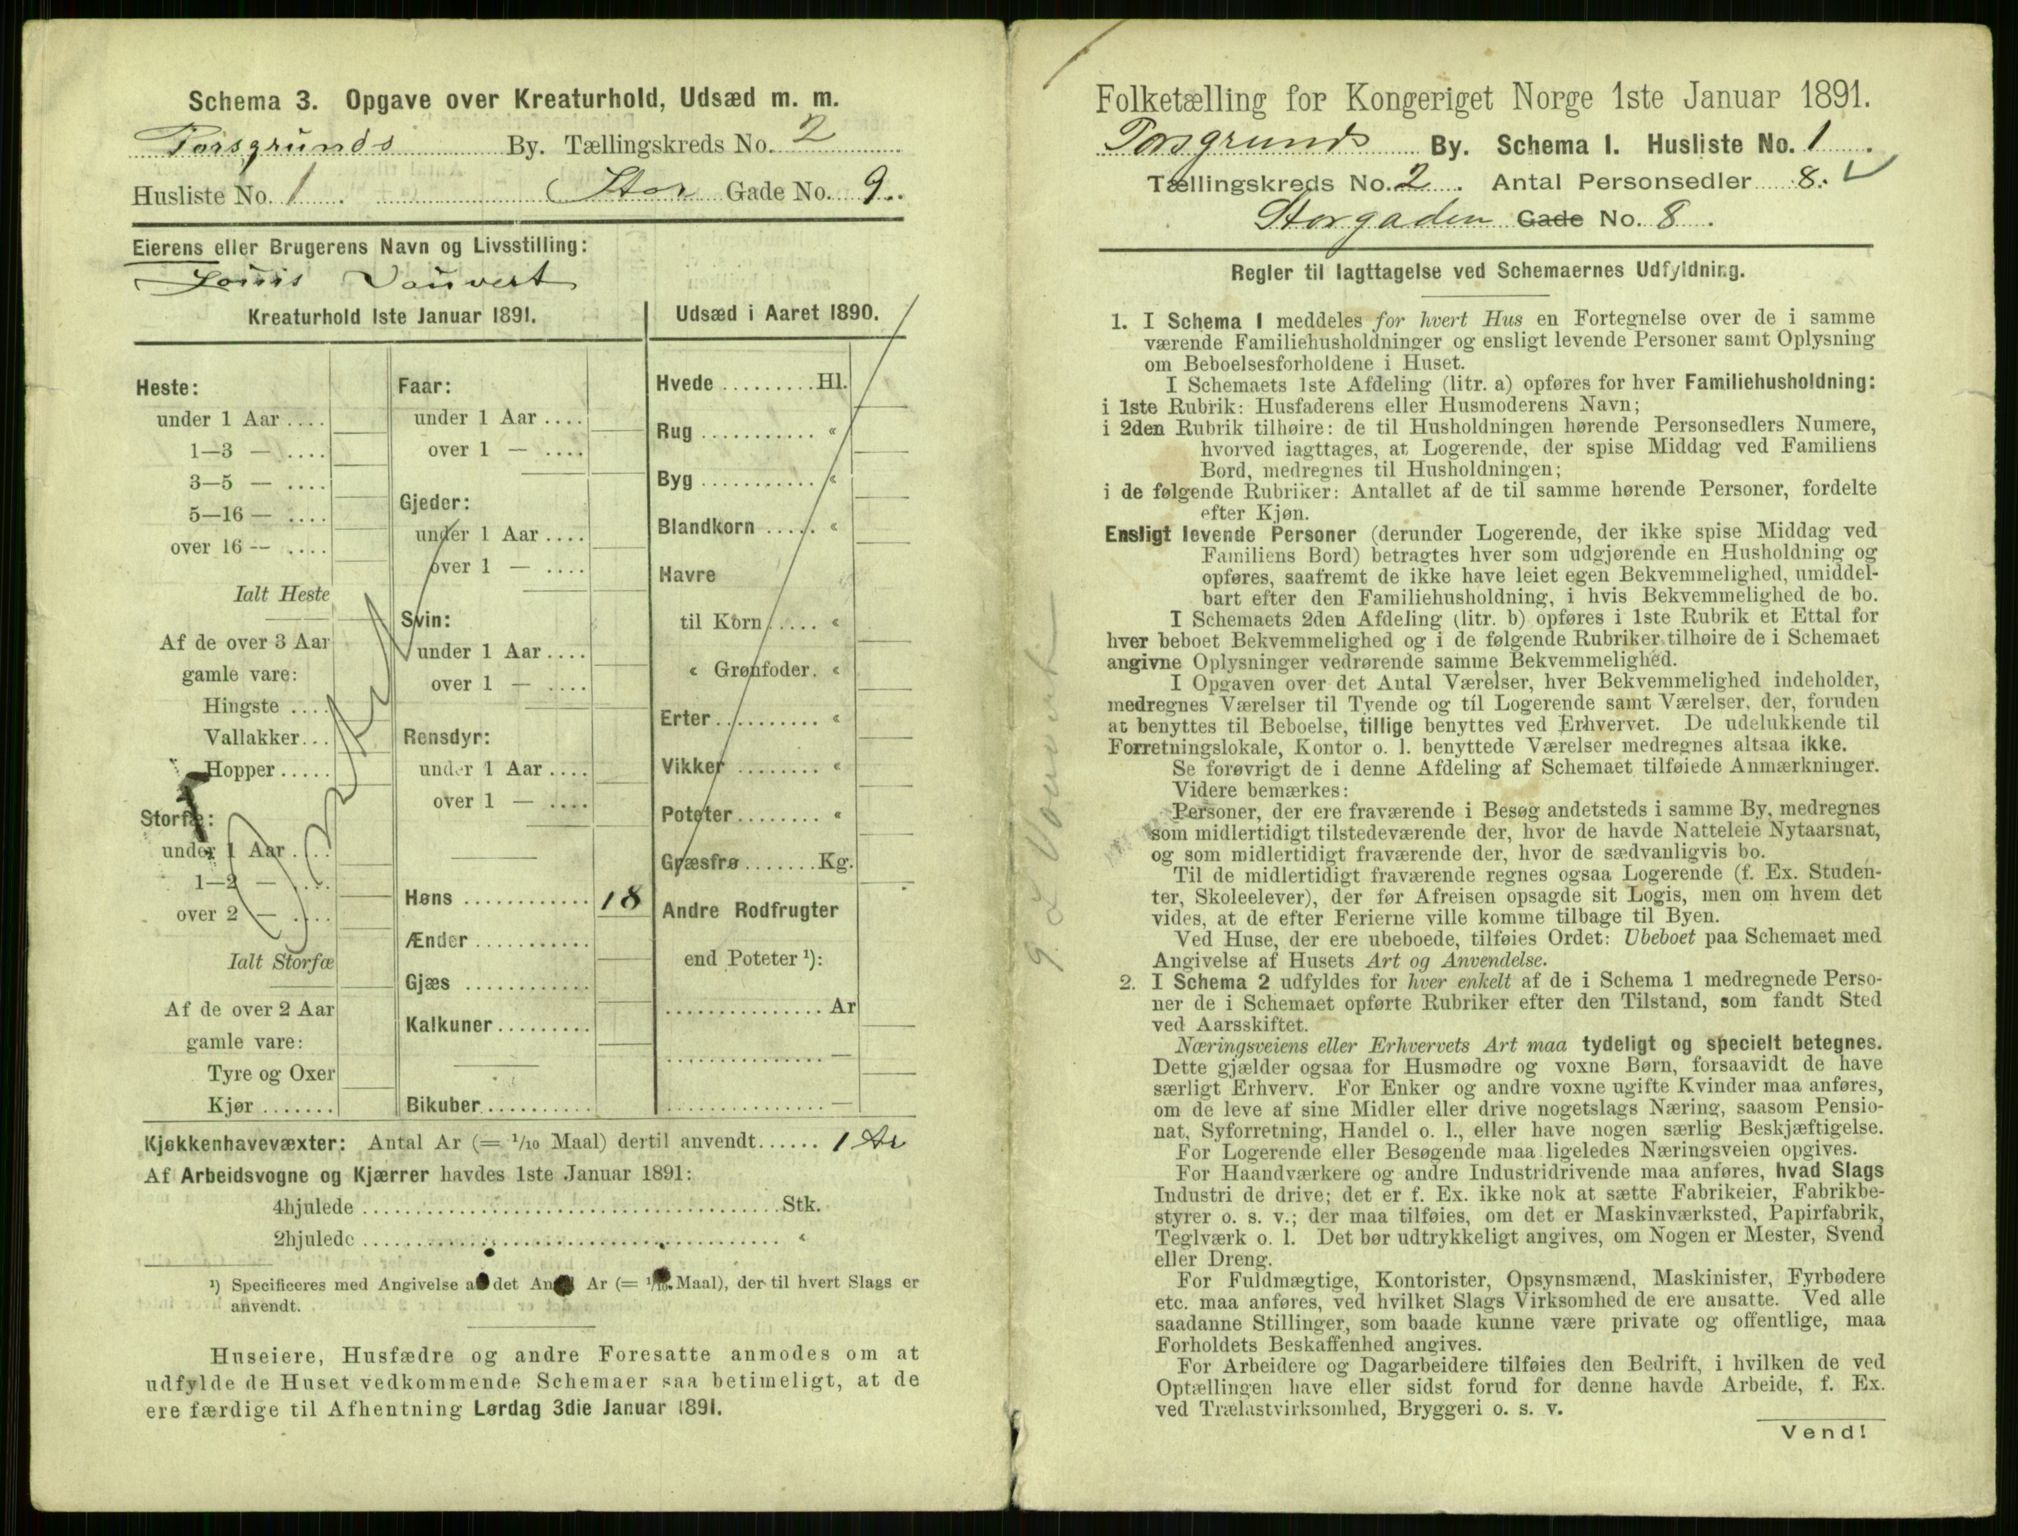 Schema 3. Opgave over Kreaturhold, Udsæd m. m.
Porsgrunds By. Tællingskreds No. 2
Husliste No. 1. Stor Gade No. 9.
Eierens eller Brugerens Navn og Livsstilling:
Louis Vauvert
Kreaturhold 1ste Januar 1891.
Heste:
under 1 Aar ....
1—3 — ....
3—5 — ....
5—16 — ....
over 16 — ....
Ialt Heste
Af de over 3 Aar
gamle vare:
Hingste ....
Vallakker...
Hopper.....
Storfæ:
under 1 Aar ....
1—2 — ....
over 2 — ....
Ialt Storfæ
Af de over 2 Aar
gamle vare:
Tyre og Oxer
Kjør.......
Faar:
under 1 Aar ....
over 1 — ....
Gjeder:
under 1 Aar ....
over 1 — ....
Svin:
under 1 Aar ....
over 1 — ....
Rensdyr:
under 1 Aar ....
over 1 — ....
Høns ............ 18
Ænder...........
Gjæs ............
Kalkuner.........
Bikuber..........
Udsæd i Aaret 1890.
Hvede .........Hl.
Rug ........... «
Byg ........... «
Blandkorn ..... «
Havre
til Korn ..... «
« Grønfoder. «
Erter.......... «
Vikker ........ «
Poteter........ «
Græsfrø .......Kg.
Andre Rodfrugter
end Poteter ¹):
...............Ar
............... —
............... —
Kjøkkenhavevæxter: Antal Ar (= 1/10 Maal) dertil anvendt...... 1 Ar
Af Arbeidsvogne og Kjærrer havdes 1ste Januar 1891:
4hjulede ........................................Stk.
2hjulede ........................................ «
¹) Specificeres med Angivelse af det Antal Ar (= 1/10 Maal), der til hvert Slags er
anvendt.
Huseiere, Husfædre og andre Foresatte anmodes om at
udfylde de Huset vedkommende Schemaer saa betimeligt, at de
ere færdige til Afhentning Lørdag 3die Januar 1891.
9 L Vauvert
Folketælling for Kongeriget Norge 1ste Januar 1891.
Porsgrunds By. Schema I. Husliste No. 1.
Tællingskreds No. 2. Antal Personsedler 8. ✓
Storgaden Gade No. 8.
Regler til Iagttagelse ved Schemaernes Udfyldning.
1. I Schema 1 meddeles for hvert Hus en Fortegnelse over de i samme
værende Familiehusholdninger og ensligt levende Personer samt Oplysning
om Beboelsesforholdene i Huset.
I Schemaets 1ste Afdeling (litr. a) opføres for hver Familiehusholdning:
i 1ste Rubrik: Husfaderens eller Husmoderens Navn;
i 2den Rubrik tilhøire: de til Husholdningen hørende Personsedlers Numere,
hvorved iagttages, at Logerende, der spise Middag ved Familiens
Bord, medregnes til Husholdningen;
i de følgende Rubriker: Antallet af de til samme hørende Personer, fordelte
efter Kjøn.
Ensligt levende Personer (derunder Logerende, der ikke spise Middag ved
Familiens Bord) betragtes hver som udgjørende en Husholdning og
opføres, saafremt de ikke have leiet egen Bekvemmelighed, umiddel-
bart efter den Familiehusholdning, i hvis Bekvemmelighed de bo.
I Schemaets 2den Afdeling (litr. b) opføres i 1ste Rubrik et Ettal for
hver beboet Bekvemmelighed og i de følgende Rubriker tilhøire de i Schemaet
angivne Oplysninger vedrørende samme Bekvemmelighed.
I Opgaven over det Antal Værelser, hver Bekvemmelighed indeholder,
medregnes Værelser til Tyende og til Logerende samt Værelser, der, foruden
at benyttes til Beboelse, tillige benyttes ved Erhvervet. De udelukkende til
Forretningslokale, Kontor o. l. benyttede Værelser medregnes altsaa ikke.
Se forøvrigt de i denne Afdeling af Schemaet tilføiede Anmærkninger.
Videre bemærkes:
Personer, der ere fraværende i Besøg andetsteds i samme By, medregnes
som midlertidigt tilstedeværende der, hvor de havde Natteleie Nytaarsnat,
og som midlertidigt fraværende der, hvor de sædvanligvis bo.
Til de midlertidigt fraværende regnes ogsaa Logerende (f. Ex. Studen-
ter, Skoleelever), der før Afreisen opsagde sit Logis, men om hvem det
vides, at de efter Ferierne ville komme tilbage til Byen.
Ved Huse, der ere ubeboede, tilføies Ordet: Ubeboet paa Schemaet med
Angivelse af Husets Art og Anvendelse.
2. I Schema 2 udfyldes for hver enkelt af de i Schema 1 medregnede Perso-
ner de i Schemaet opførte Rubriker efter den Tilstand, som fandt Sted
ved Aarsskiftet.
Næringsveiens eller Erhvervets Art maa tydeligt og specielt betegnes.
Dette gjælder ogsaa for Husmødre og voxne Børn, forsaavidt de have
særligt Erhverv. For Enker og andre voxne ugifte Kvinder maa anføres,
om de leve af sine Midler eller drive nogetslags Næring, saasom Pensio-
nat, Syforretning, Handel o. l., eller have nogen særlig Beskjæftigelse.
For Logerende eller Besøgende maa ligeledes Næringsveien opgives.
For Haandværkere og andre Industridrivende maa anføres, hvad Slags
Industri de drive; det er f. Ex. ikke nok at sætte Fabrikeier, Fabrikbe-
styrer o. s. v.; der maa tilføies, om det er Maskinværksted, Papirfabrik,
Teglværk o. l. Det bør udtrykkeligt angives, om Nogen er Mester, Svend
eller Dreng.
For Fuldmægtige, Kontorister, Opsynsmænd, Maskinister, Fyrbødere
etc. maa anføres, ved hvilket Slags Virksomhed de ere ansatte. Ved alle
saadanne Stillinger, som baade kunne være private og offentlige, maa
Forholdets Beskaffenhed angives.
For Arbeidere og Dagarbeidere tilføies den Bedrift, i hvilken de ved
Optællingen have eller sidst forud for denne havde Arbeide, f. Ex.
ved Trælastvirksomhed, Bryggeri o. s. v.
Vend!